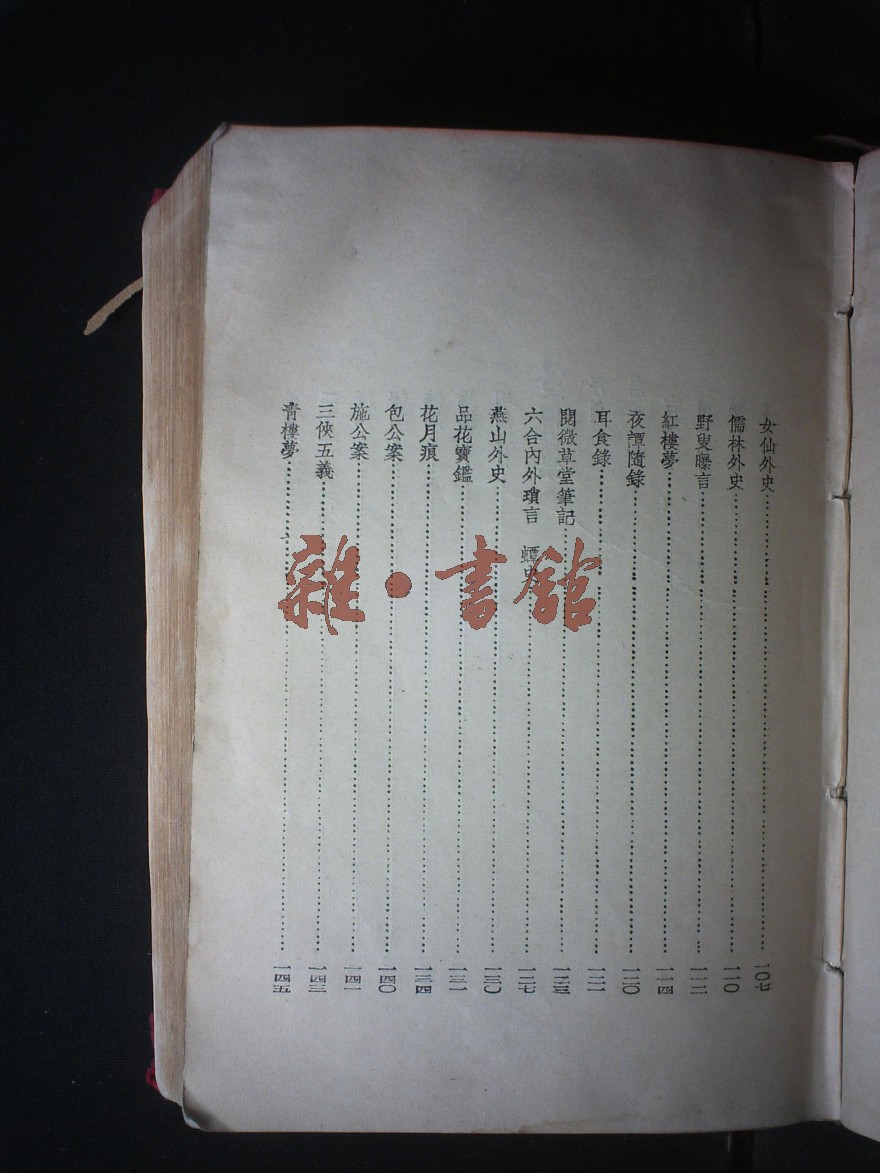 女仙外史……一〇七
儒林外史……一一〇
野叟曝言……一一二
紅樓夢……一一四
夜譚隨錄……一二〇
耳食錄……一二二
閱微草堂筆記……一二三
六合內外瑣言 蟫史……一二七
燕山外史……一三〇
品花寶鑑……一三一
花月痕……一三四
包公案……一四〇
施公案……一四一
三俠五義……一四三
青樓夢……一四五
雜·書館